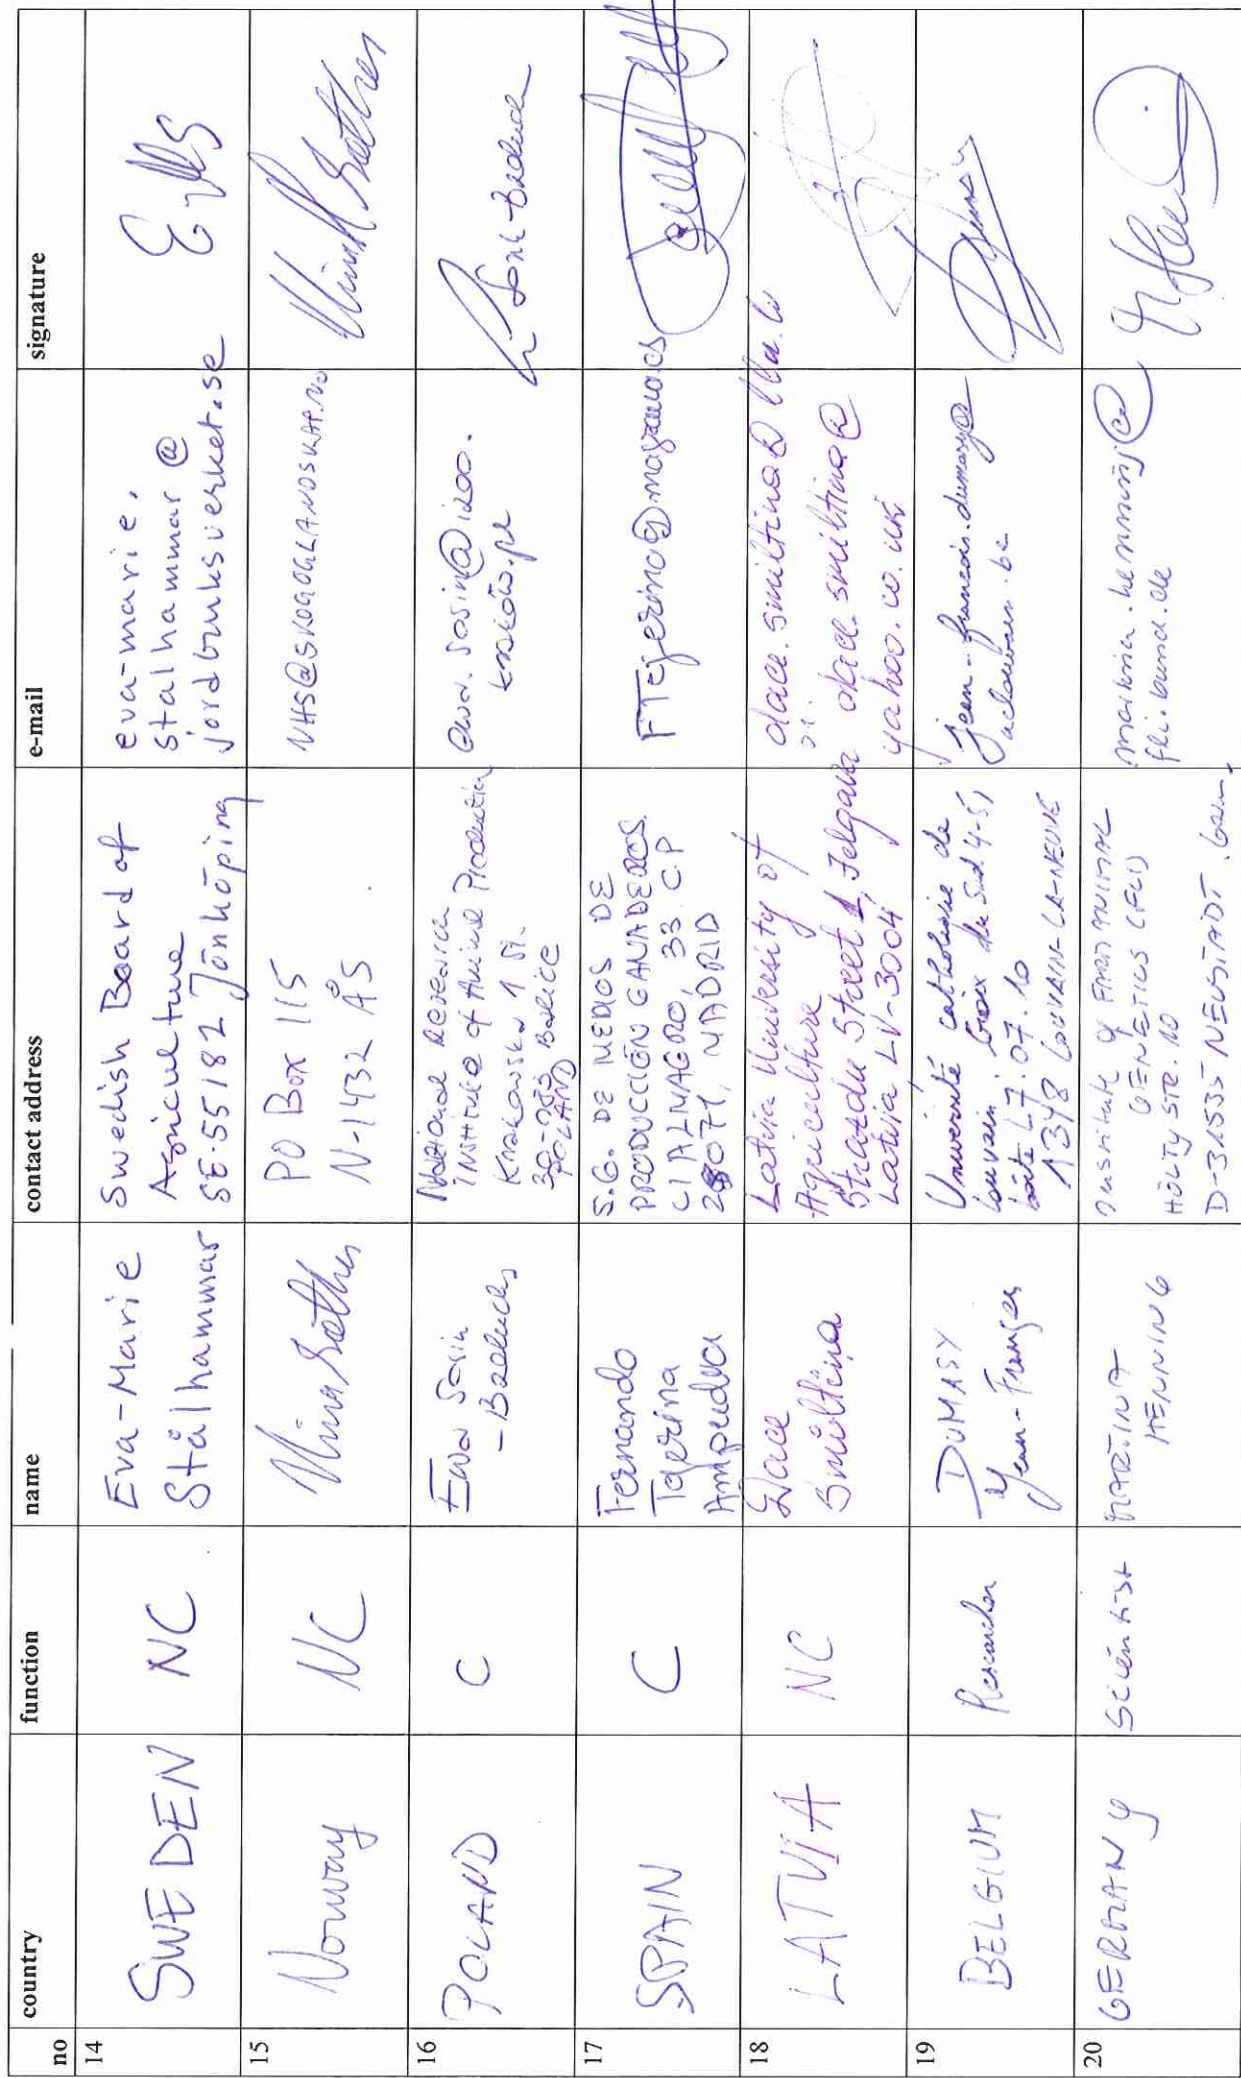 no country function name contact address e-mail signature
14 SWEDEN NC Eva-Marie
Stålhammar
Swedish Board of
Agriculture
SE-55182 Jönköping
eva-marie.
stalhammar@
jordbruksverket.se
15 Norway NC Nina Sæther
PO Box 115
N-1432 ÅS
NHS@SKOGOGLANDSKAP.NO
Nina Sæther
16 POLAND C Ewa Sosin
-Bzducha
National Research
Institute of Animal Production
Krakowska 1 St.
Balice
POLAND
ewa.sosin@izoo.
krakow.pl
17 SPAIN C Fernando
Tejerina
Ampudia
S.G. DE MEDIOS DE
PRODUCCIÓN GANADEROS.
C/ ALMAGRO, 33. C.P
28071, MADRID
FTejerina@
18 LATVIA NC Dace
Smiltiņa
Latvia University of
Agriculture
Street 1, Jelgava
Latvia LV-3004
dace.smiltina@llu.lv
dace.smiltina@
yahoo.co.uk
19 BELGIUM Researcher DUMASY
Jean-François
Université catholique de
Louvain Croix du Sud 4-5,
boîte L7.07.
1348 LOUVAIN-LA-NEUVE
jean-francois.dumasy@
uclouvain.be
20 GERMANY Scientist MARTINA
HENNING
Institute of FARM ANIMAL
GENETICS (FLI)
HÖLTYSTR. 10
D-31535 NEUSTADT
martina.henning@
fli.bund.de